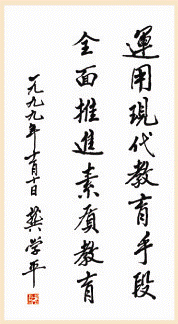 運用現代教育手段
全面推進素质教育
一九九九年十一月十日 龚学平